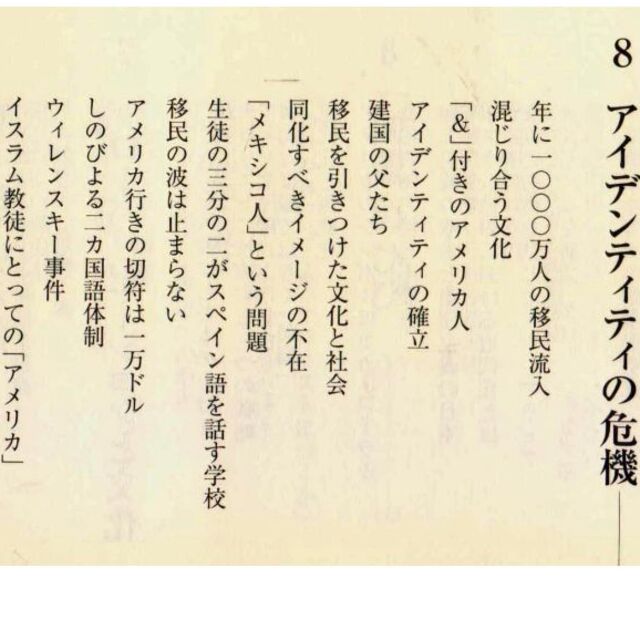 8 アイデンティティの危機
年に一〇〇〇万人の移民流入
混じり合う文化
「&」付きのアメリカ人
アイデンティティの確立
建国の父たち
移民を引きつけた文化と社会
同化すべきイメージの不在
「メキシコ人」という問題
生徒の三分の二がスペイン語を話す学校
移民の波は止まらない
アメリカ行きの切符は一万ドル
しのびよる二カ国語体制
ウィレンスキー事件
イスラム教徒にとっての「アメリカ」